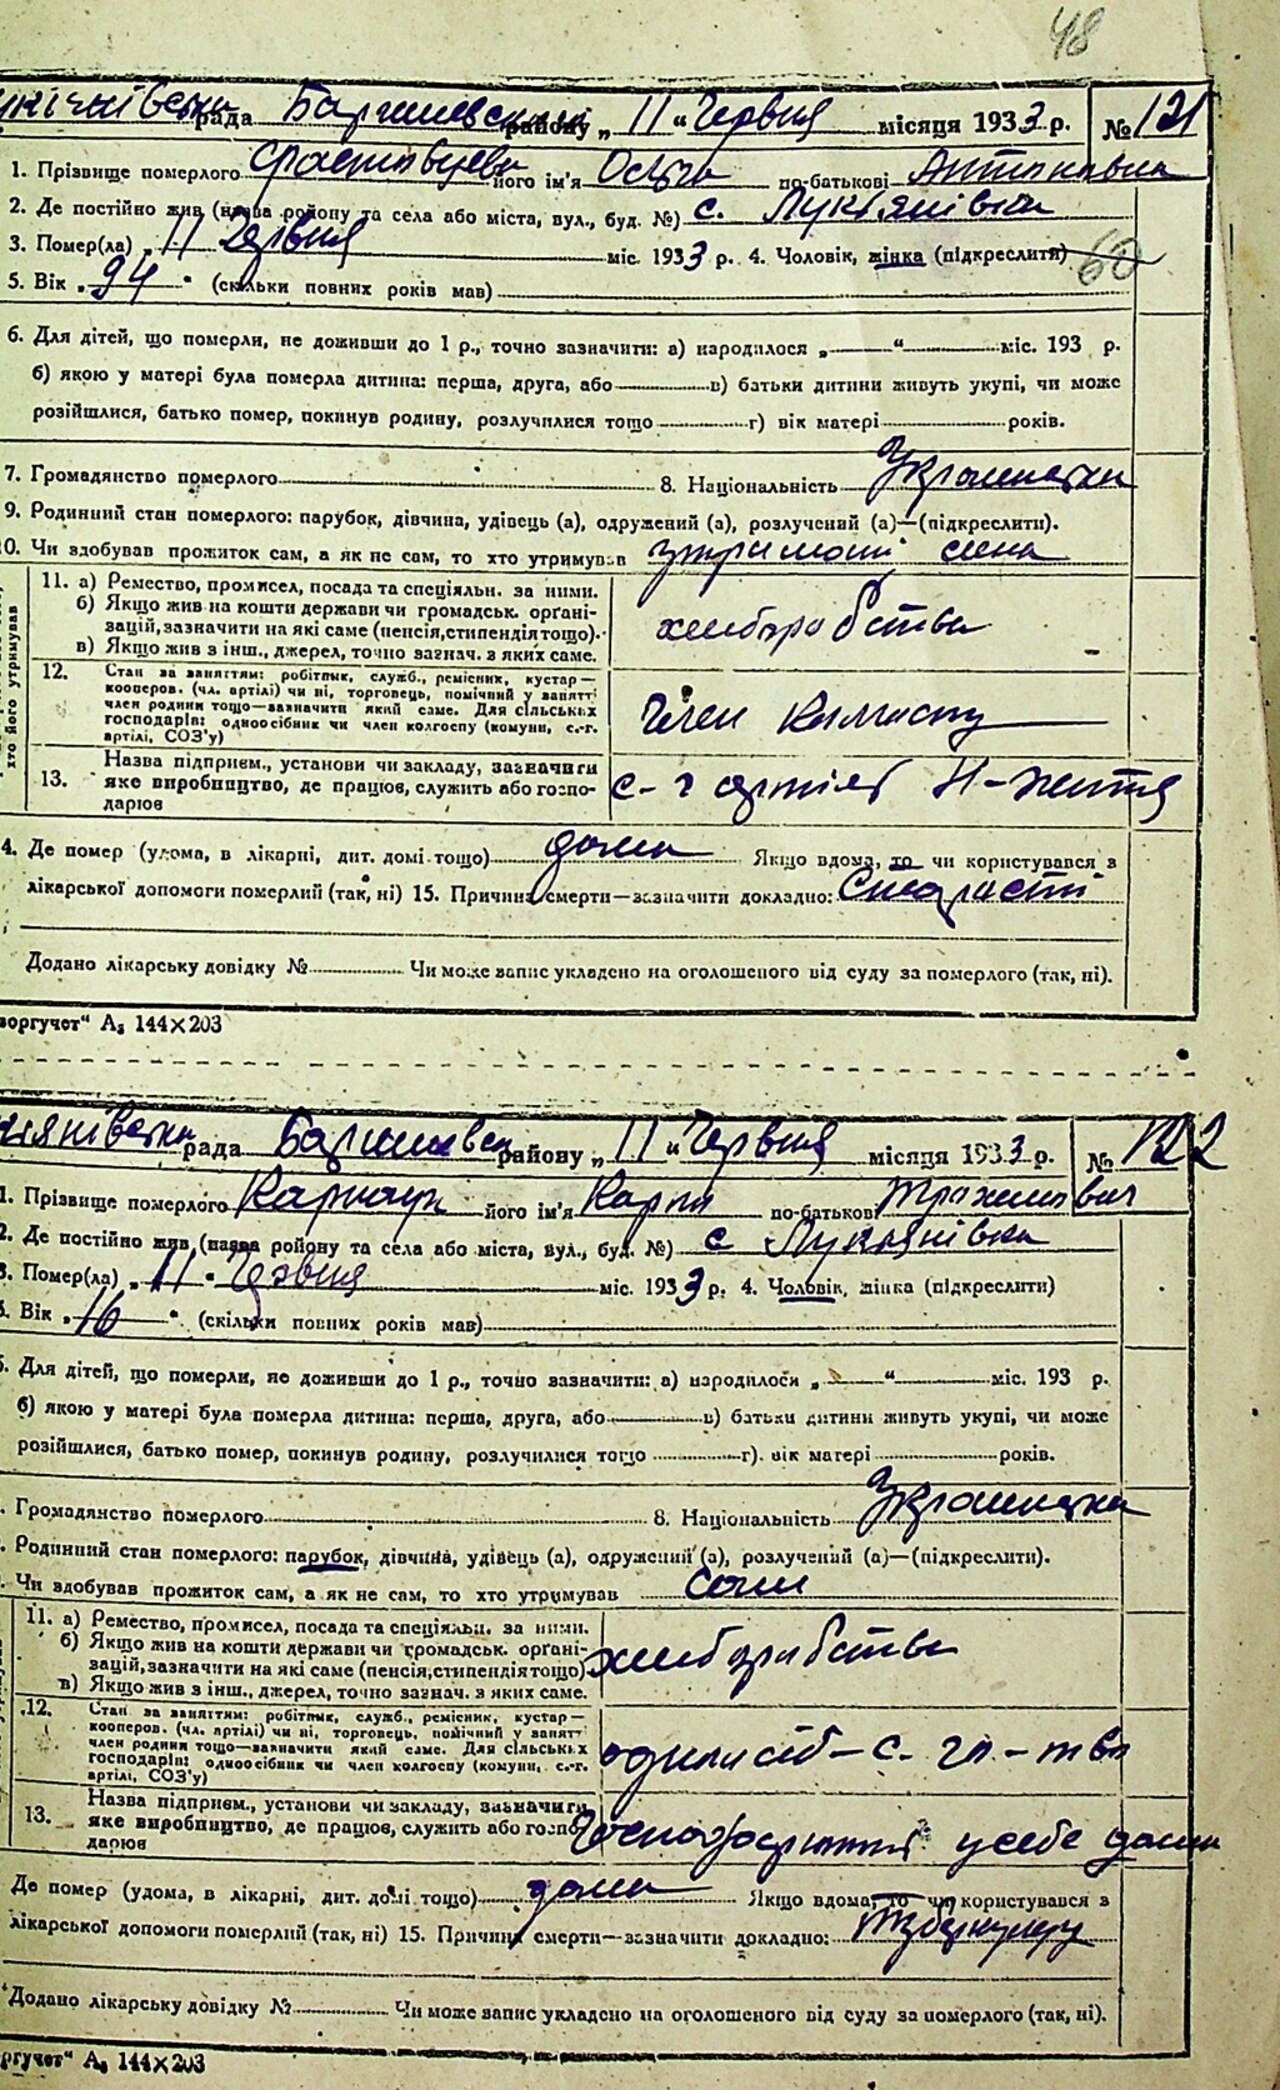 48
рада Баришевський району „ 11 “ Червня місяця 1933 р. № 121
1. Прізвище померлого його ім'я Ольга по-батькові Антонівна
2. Де постійно жив (назва району та села або міста, вул., буд. №) с. Лукіянівка
3. Помер(ла) „ 11 Червня міс. 1933 р. 4. Чоловік, жінка (підкреслити) 60
5. Вік „ 94 “ (скільки повних років мав)
6. Для дітей, що померли, не доживши до 1 р., точно зазначити: а) народилося „ “ міс. 193 р.
б) якою у матері була померла дитина: перша, друга, або в) батьки дитини живуть укупі, чи може
розійшлися, батько помер, покинув родину, розлучилися тощо г) вік матері років.
7. Громадянство померлого 8. Національність Українська
9. Родинний стан померлого: парубок, дівчина, удівець (а), одружений (а), розлучений (а)—(підкреслити).
10. Чи здобував прожиток сам, а як не сам, то хто утримував утримоні сина
хто його утримував
11. а) Ремество, промисел, посада та спеціяльн. за ними.
б) Якщо жив на кошти держави чи громадськ. орґані-
зацій, зазначити на які саме (пенсія, стипендія тощо).
в) Якщо жив з інш., джерел, точно зазнач. з яких саме.
хліборобство
12. Стан за заняттям: робітник, служб., ремісник, кустар—
кооперов. (чл. артілі) чи ні, торговець, помічний у занятті
член родини тощо—зазначити який саме. Для сільських
господарів: одноосібник чи член колгоспу (комуни, с.-г.
артілі, СОЗ'у)
Член колгоспу
13. Назва підприєм., установи чи закладу, зазначити
яке виробництво, де працює, служить або госпо-
дарює
с-г артіль Н-життя
4. Де помер (удома, в лікарні, дит. домі тощо) дома Якщо вдома, то чи користувався з
лікарської допомоги померлий (так, ні) 15. Причина смерти—зазначити докладно: Старисті
Додано лікарську довідку № Чи може запис укладено на оголошеного від суду за померлого (так, ні).
воргучет“ А₃ 144×203
рада Баришевськ району „ 11 “ Червня місяця 1933 р. № 122
1. Прізвище померлого Карнаух його ім'я Карпо по-батькові Трохимович
2. Де постійно жив (назва району та села або міста, вул., буд. №) с Лукьянівка
3. Помер(ла) „ 11 “ Червня міс. 1933 р. 4. Чоловік, жінка (підкреслити)
5. Вік „ 16 “ (скільки повних років мав)
6. Для дітей, що померли, не доживши до 1 р., точно зазначити: а) народилося „ “ міс. 193 р.
б) якою у матері була померла дитина: перша, друга, або в) батьки дитини живуть укупі, чи може
розійшлися, батько помер, покинув родину, розлучилися тощо г). вік матері років.
Громадянство померлого 8. Національність Українська
Родинний стан померлого: парубок, дівчина, удівець (а), одружений (а), розлучений (а)—(підкреслити).
Чи здобував прожиток сам, а як не сам, то хто утримував сами
11. а) Ремество, промисел, посада та спеціяльн. за ними.
б) Якщо жив на кошти держави чи громадськ. орґані-
зацій, зазначити на які саме (пенсія, стипендія тощо).
в) Якщо жив з інш., джерел, точно зазнач. з яких саме.
хліборобство
12. Стан за заняттям: робітник, служб., ремісник, кустар—
кооперов. (чл. артілі) чи ні, торговець, помічний у занятті
член родини тощо—зазначити який саме. Для сільських
господарів: одноосібник чи член колгоспу (комуни, с.-г.
артілі, СОЗ'у)
13. Назва підприєм., установи чи закладу, зазначити
яке виробництво, де працює, служить або госпо-
дарює
у себе дома
Де помер (удома, в лікарні, дит. домі тощо) дома Якщо вдома, то чи користувався з
лікарської допомоги померлий (так, ні) 15. Причина смерти—зазначити докладно:
Додано лікарську довідку № Чи може запис укладено на оголошеного від суду за померлого (так, ні).
ргучет“ А₃ 144×203